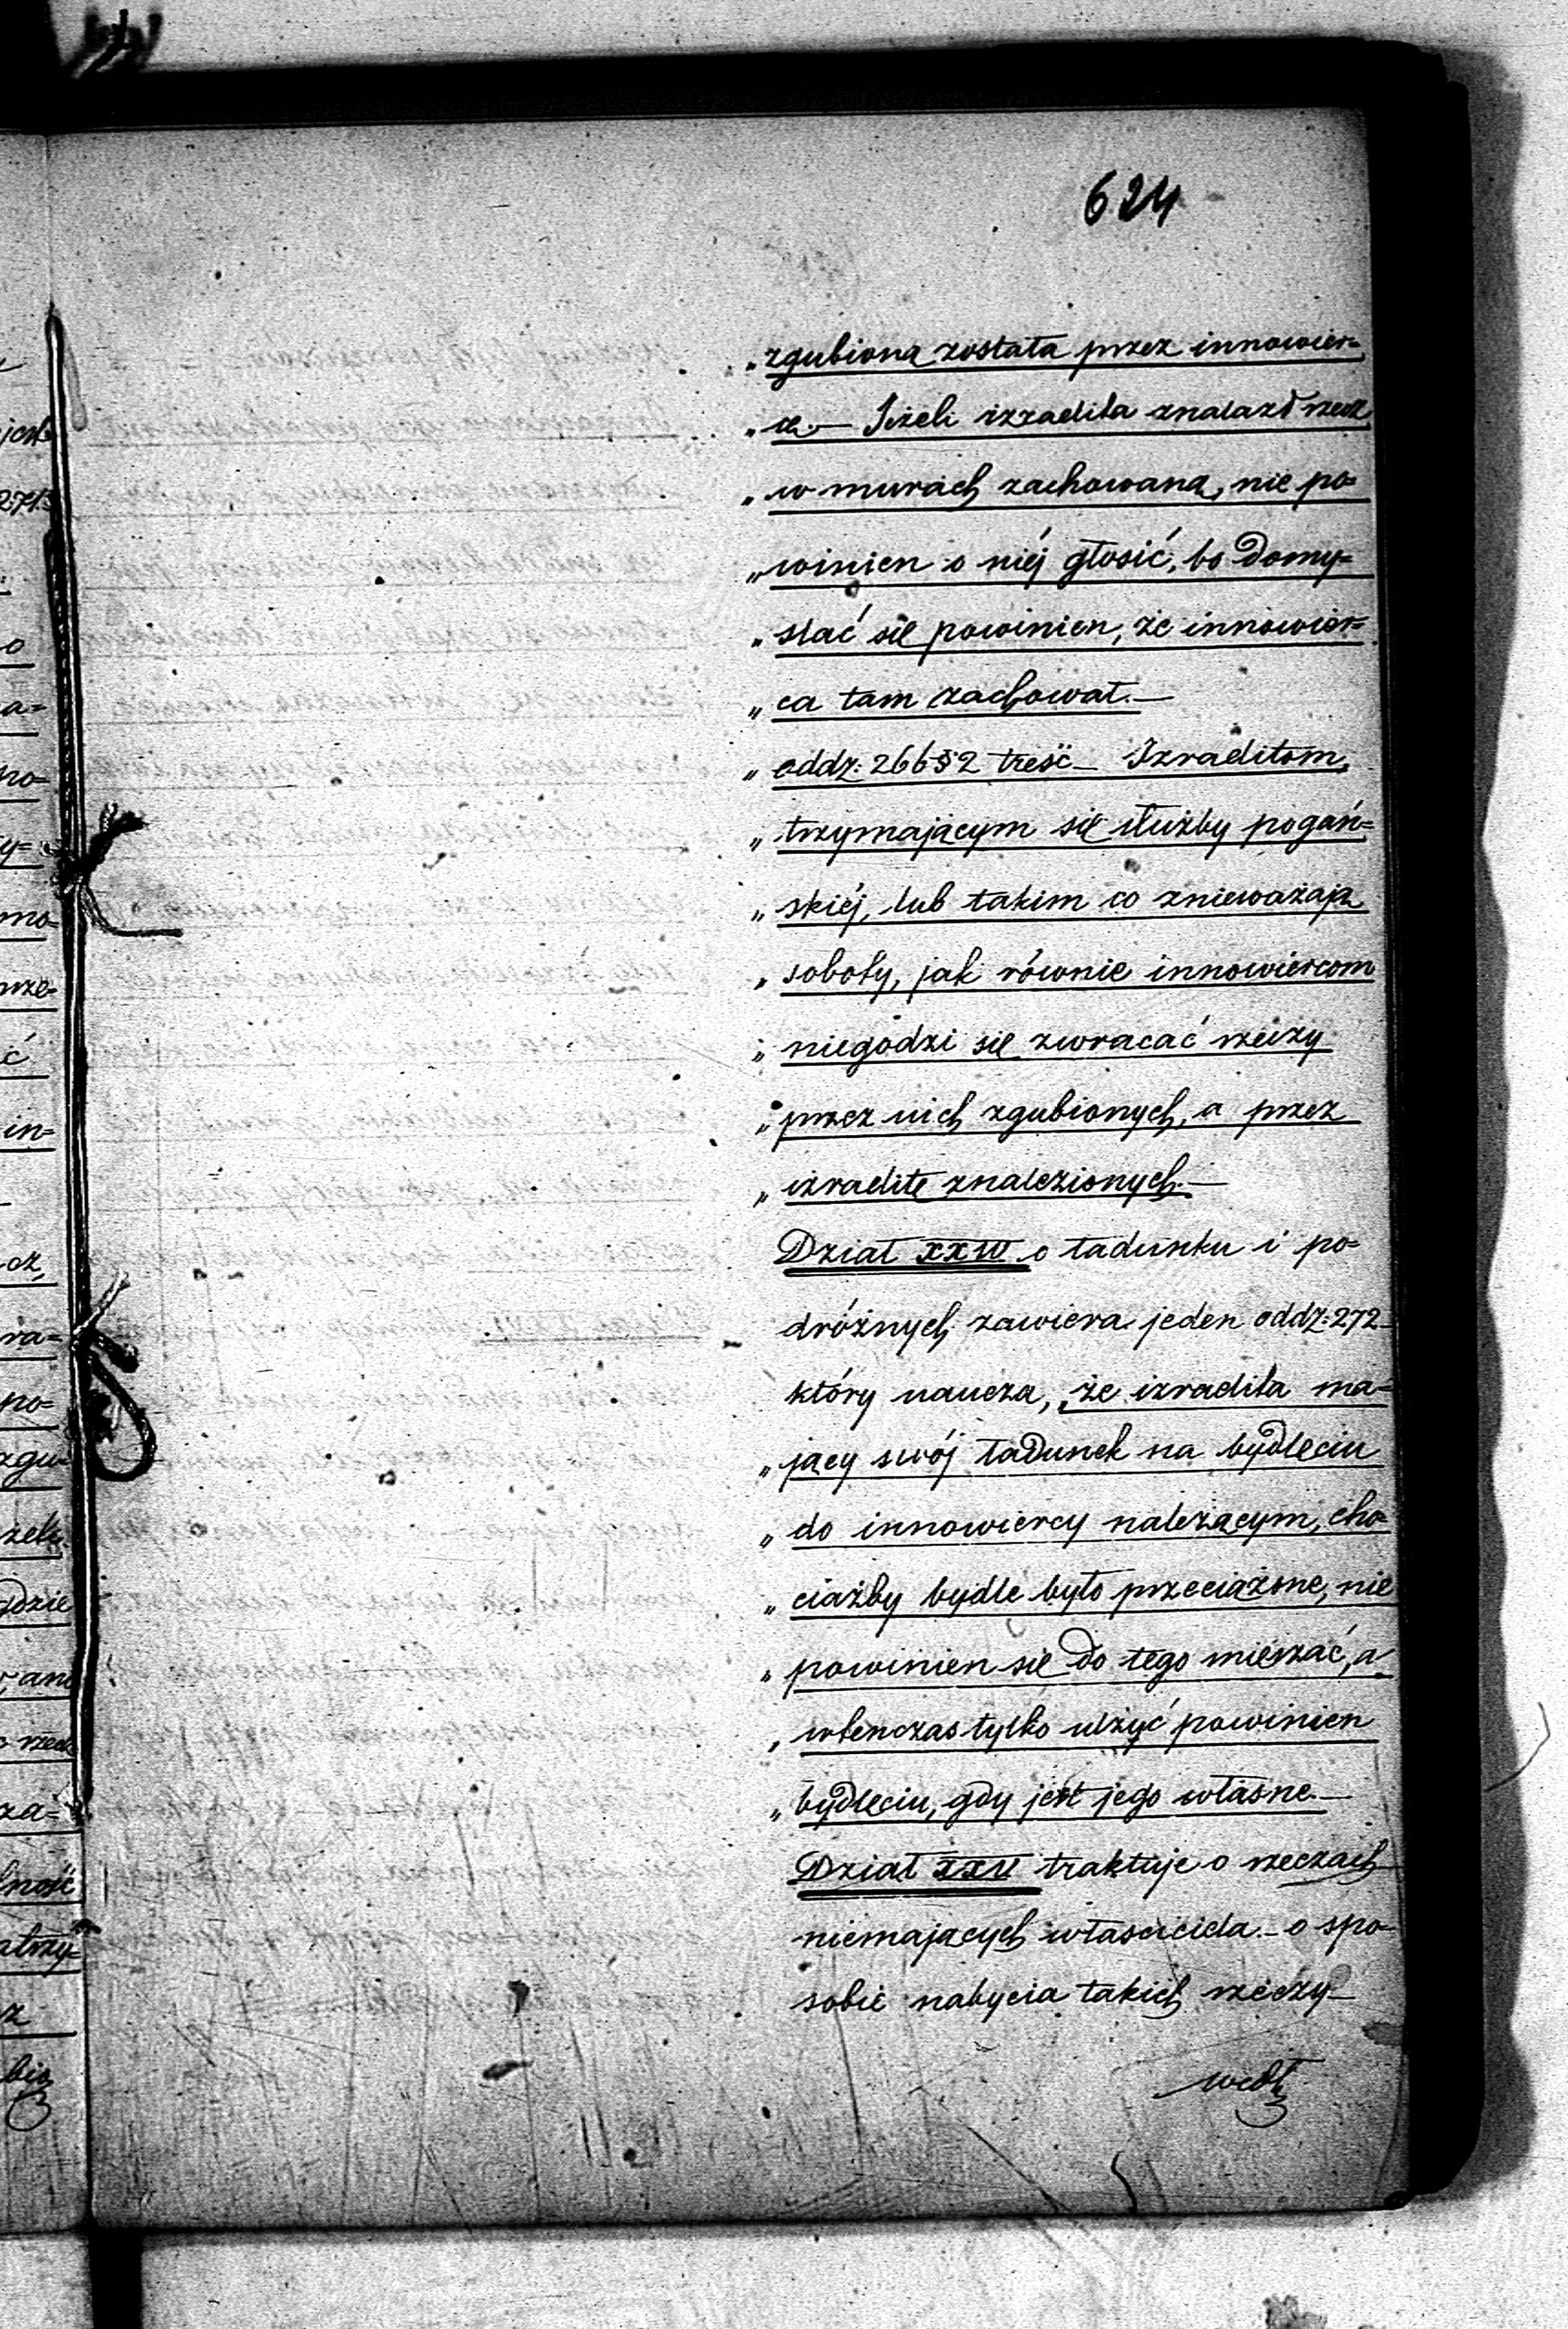 624
„zgubioną została przez innowier=
„cę.— Jeżeli izraelita znalazł rzecz
„w murach zachowaną, nie po=
„winien o niéj głosić, bo domy=
„slać się powinien, że innowier=
„ca tam zachował.—
„oddz: 266 § 2 treść— Izraelitom,
„trzymającym się służby pogań=
„skiéj, lub takim co znieważają
„soboty, jak równie innowiercom
„niegodzi się zwracać rzeczy
„przez nich zgubionych, a przez
„izraelitę znalezionych.—
Dział XXIV o ładunku i po=
dróżnych zawiera jeden oddz: 272
który naucza, „że izraelita ma=
„jący swój ładunek na bydlęciu
„do innowiercy należącym, cho=
„ciażby bydle było przeciążone, nie
„powinien się do tego mieszać, a
„wtenczas tylko ulżyć powinien
„bydlęciu, gdy jest jego własne.—
Dział XXV traktuje o rzeczach
niemających właściciela.— o spo=
sobie nabycia takich rzeczy—
wedł